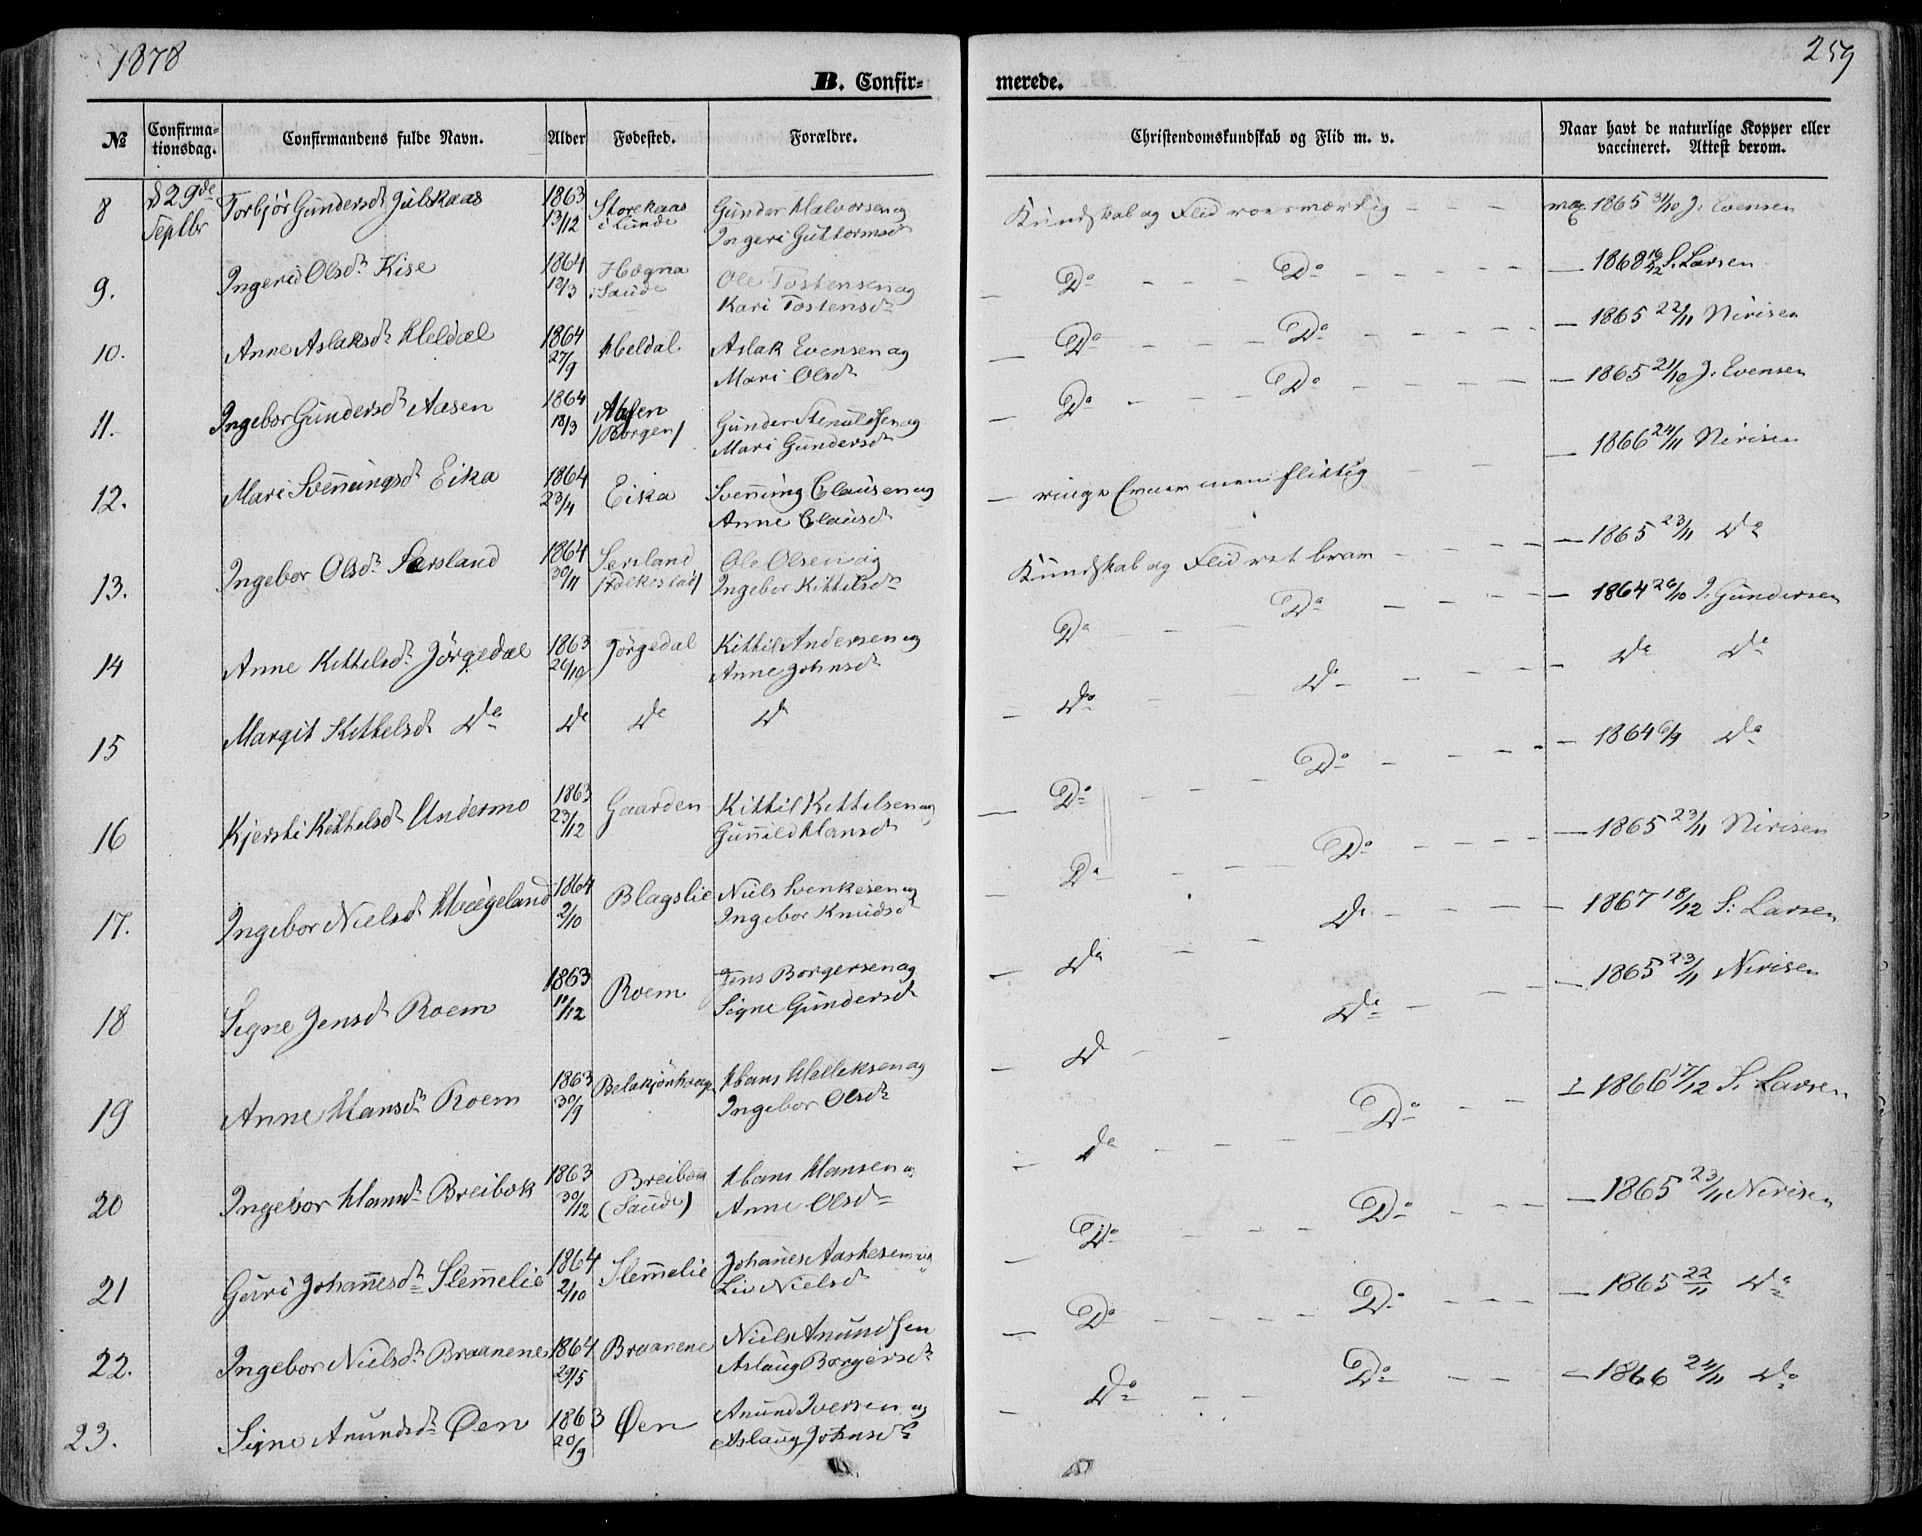 1878
259
B. Confirmerede.
№ Confirmationsdag. Confirmandens fulde Navn. Alder Fødested. Forældre. Christendomskundskab og Flid m. v. Naar havt de naturlige Kopper eller vaccineret. Attest derom.
8 d 29de Septbr Torbjør Gundersdr Julskaas 1863 13/12 Storekaas i Lunde Gunder Halvorsen og Ingeri Guttormsdr Kundskab og Flid rosværdig - - - vac. 1865 31/10 J. Evensen
9. Ingerid Olsdr Kise 1864 10/3 Hogna i Saude Ole Tostensen og Kari Tostensdr — Do - - - Do - - - — 1868 S. Larsen
10. Anne Aslaksdr Heldal 1864 27/9 Heldal Aslak Evensen og Mari Olsdr — Do - - - Do - - - — 1865 22/11 Nirisen
11. Ingebor Gundersdr Aasen 1864 18/3 Aasen /Borgen/ Gunder Stenulfsen og Mari Gundersdr — Do - - - Do - - - — 1865 21/10 J. Evensen
12. Mari Svenningsdr Eika 1864 23/4 Eika Svenning Clausen og Anne Clausdr — ringe Evner men flittig - - - 1866 24/11 Nirisen
13. Ingebor Olsdr Sersland 1864 30/11 Sersland /Folkestad/ Ole Olsen og Ingebor Kittelsdr Kundskab og Flid ret bram - - - — 1865 23/11 Do
14 Anne Kittelsdr Jørgedal 1863 26/10 Jørgedal Kittil Andersen og Anne Johnsdr Do Do - - - — 1864 26/10 J. Gundersen
15 Margit Kittelsdr Do Do Do Do — Do - - - Do - - - — Do Do
16 Kjersti Kittelsdr Undermo 1863 23/12 Gaarden Kittil Kittilsen og Gunild Hansdr — Do - - - Do - - - — 1864 6/9 Do
17. Ingebor Nielsdr Haægeland 1864 2/10 Blagslie Niels Svenkesen og Ingebor Knudsdr — Do - - - Do - - - — 1865 23/11 Nirisen
18 Signe Jensdr Roem 1863 11/12 Roem Jens Borgersen og Signe Gundersdr — Do - - - Do - - - — 1867 18/12 S. Larsen
19 Anne Hansdr Roem 1863 30/9 Hans Helleksen og Ingebor Olsdr — Do - - - Do - - - — 1865 23/11 Nirisen
20 Ingebor Hansdr Breibok 1863 30/12 Breibok (Saude) Hans Hansen og Anne Olsdr — Do - - - Do - - - — 1866 17/12 S. Larsen
21 Guri Johannesdr Slemmelie 1864 2/10 Slemmelie Johanes Aaskesen og Liv Nielsdr — Do - - - Do - - - — 1865 23/11 Nirisen
22. Ingebor Nielsdr Braanene 1864 29/5 Braanene Niels Anundsen Aslaug Borgersdr — Do - - - Do - - - — 1865 22/11 Do
23. Signe Anundsdr Øen 1863 20/9 Øen Anund Iversen og Aslaug Johnsdr — Do - - - Do - - - — 1866 24/11 Do